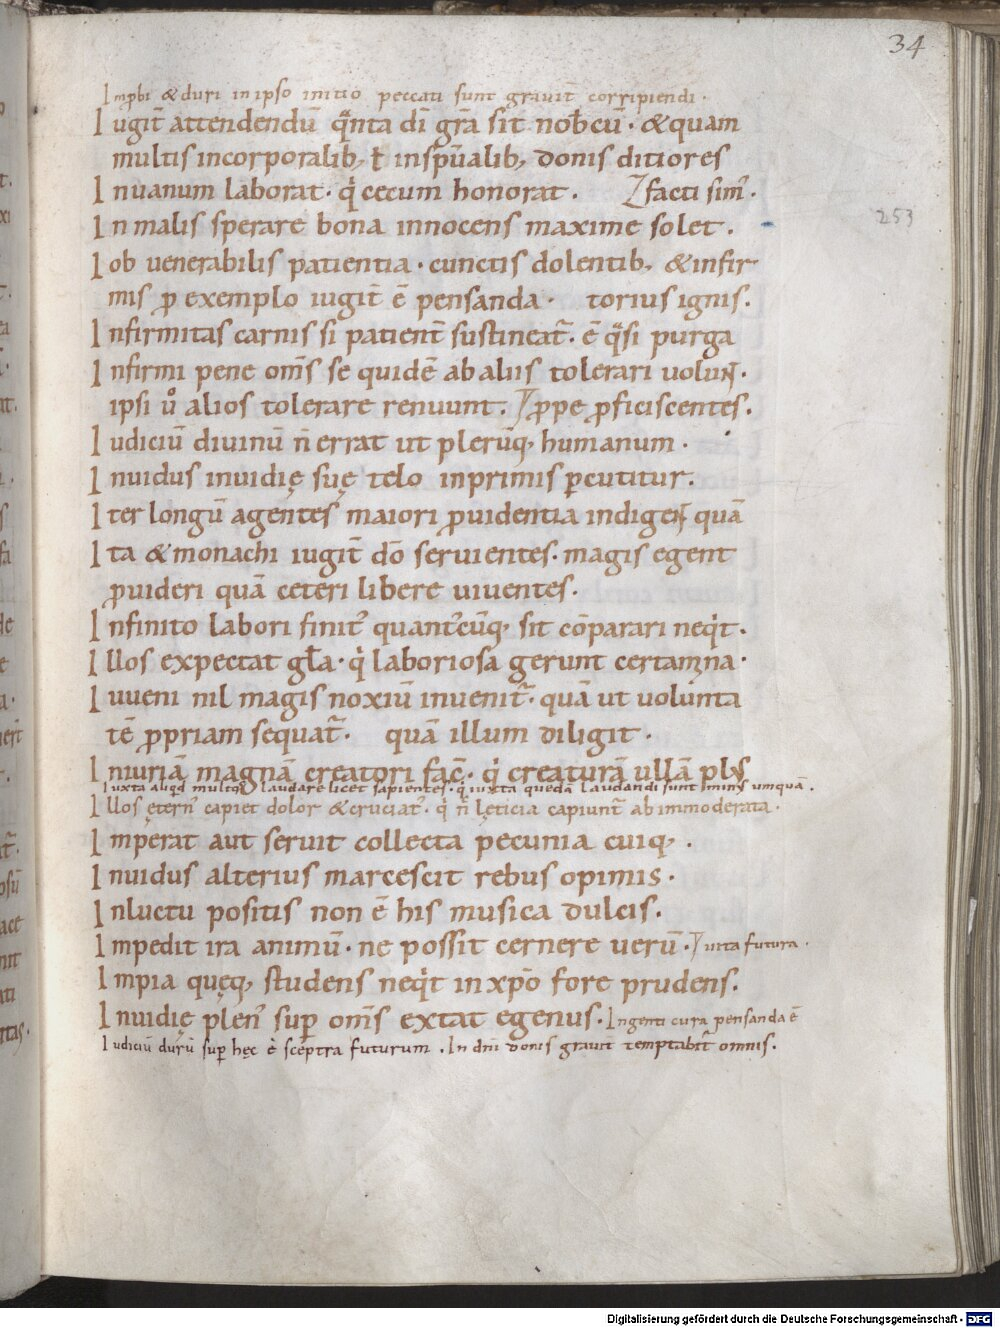 34
Imp̄bi & duri in ipso initio peccati sunt grauit̄ corripiendi.
Iugit̄ attendendū qͣnta dī gr̄a sit nobcū. & quam
multis incorporalib; ł insp̄ualib; donis ditiores
Inuanum laborat. qͥ cecum honorat. facti simꝰ.
253
In malis sperare bona innocens maxime solet.
Iob uenerabilis patientia. cunctis dolentib; & infir
mis p̱ exemplo iugit̄ ē pensanda. torius ignis.
Infirmitas carnis si patient̄ sustineat̄. ē qͣsi purga
Infirmi pene om̄s se quidē ab aliis tolerari uolunt.
ipsi ů alios tolerare renuunt. ꝓpe ꝓficiscentes.
Iudiciū diuinū n̄ errat ut pleruq; humanum.
Inuidus inuidię suę telo inprimis p̱cutitur.
Iter longū agentes maiori ꝓuidentia indigent quā
Ita & monachi iugit̄ dō seruientes. magis egent
ꝓuideri quā ceteri libere uiuentes.
Infinito labori finitꝰ quantꝰcūq; sit cōparari neqͥt.
Illos expectat gła. qͥ laboriosa gerunt certamina.
Iuueni nil magis noxiū inuenit̄. quā ut uolunta
tē ꝓpriam sequat̄. quā illum diligit.
Iniuriā magnā creatori fac̄. qͥ creaturā ullā plꝰ
Iuxta aliqd multos laudare licet sapientes. qͥ iuxta quedā laudandi sunt minꝰ umquā.
Illos ęternꝰ capiet dolor & cruciatꝰ. qͥ n̄ lęticia capiunt̄ ab immoderata.
Imperat aut seruit collecta pecunia cuiq;.
Inuidus alterius marcescit rebus opimis.
In luctu positis non ē his musica dulcis.
Impedit ira animū. ne possit cernere uerū. uita futura.
Impia quęq; studens neqͥt in xp̄o fore prudens.
Inuidię plenꝰ sup̱ om̄s extat egenus. Ingenti cura pensanda ē
Iudiciū durū sup̱ hęc ē sceptra futurum. In dn̄i donis grauit̄ temptabit̄ omnis.
Digitalisierung gefördert durch die Deutsche Forschungsgemeinschaft - DFG